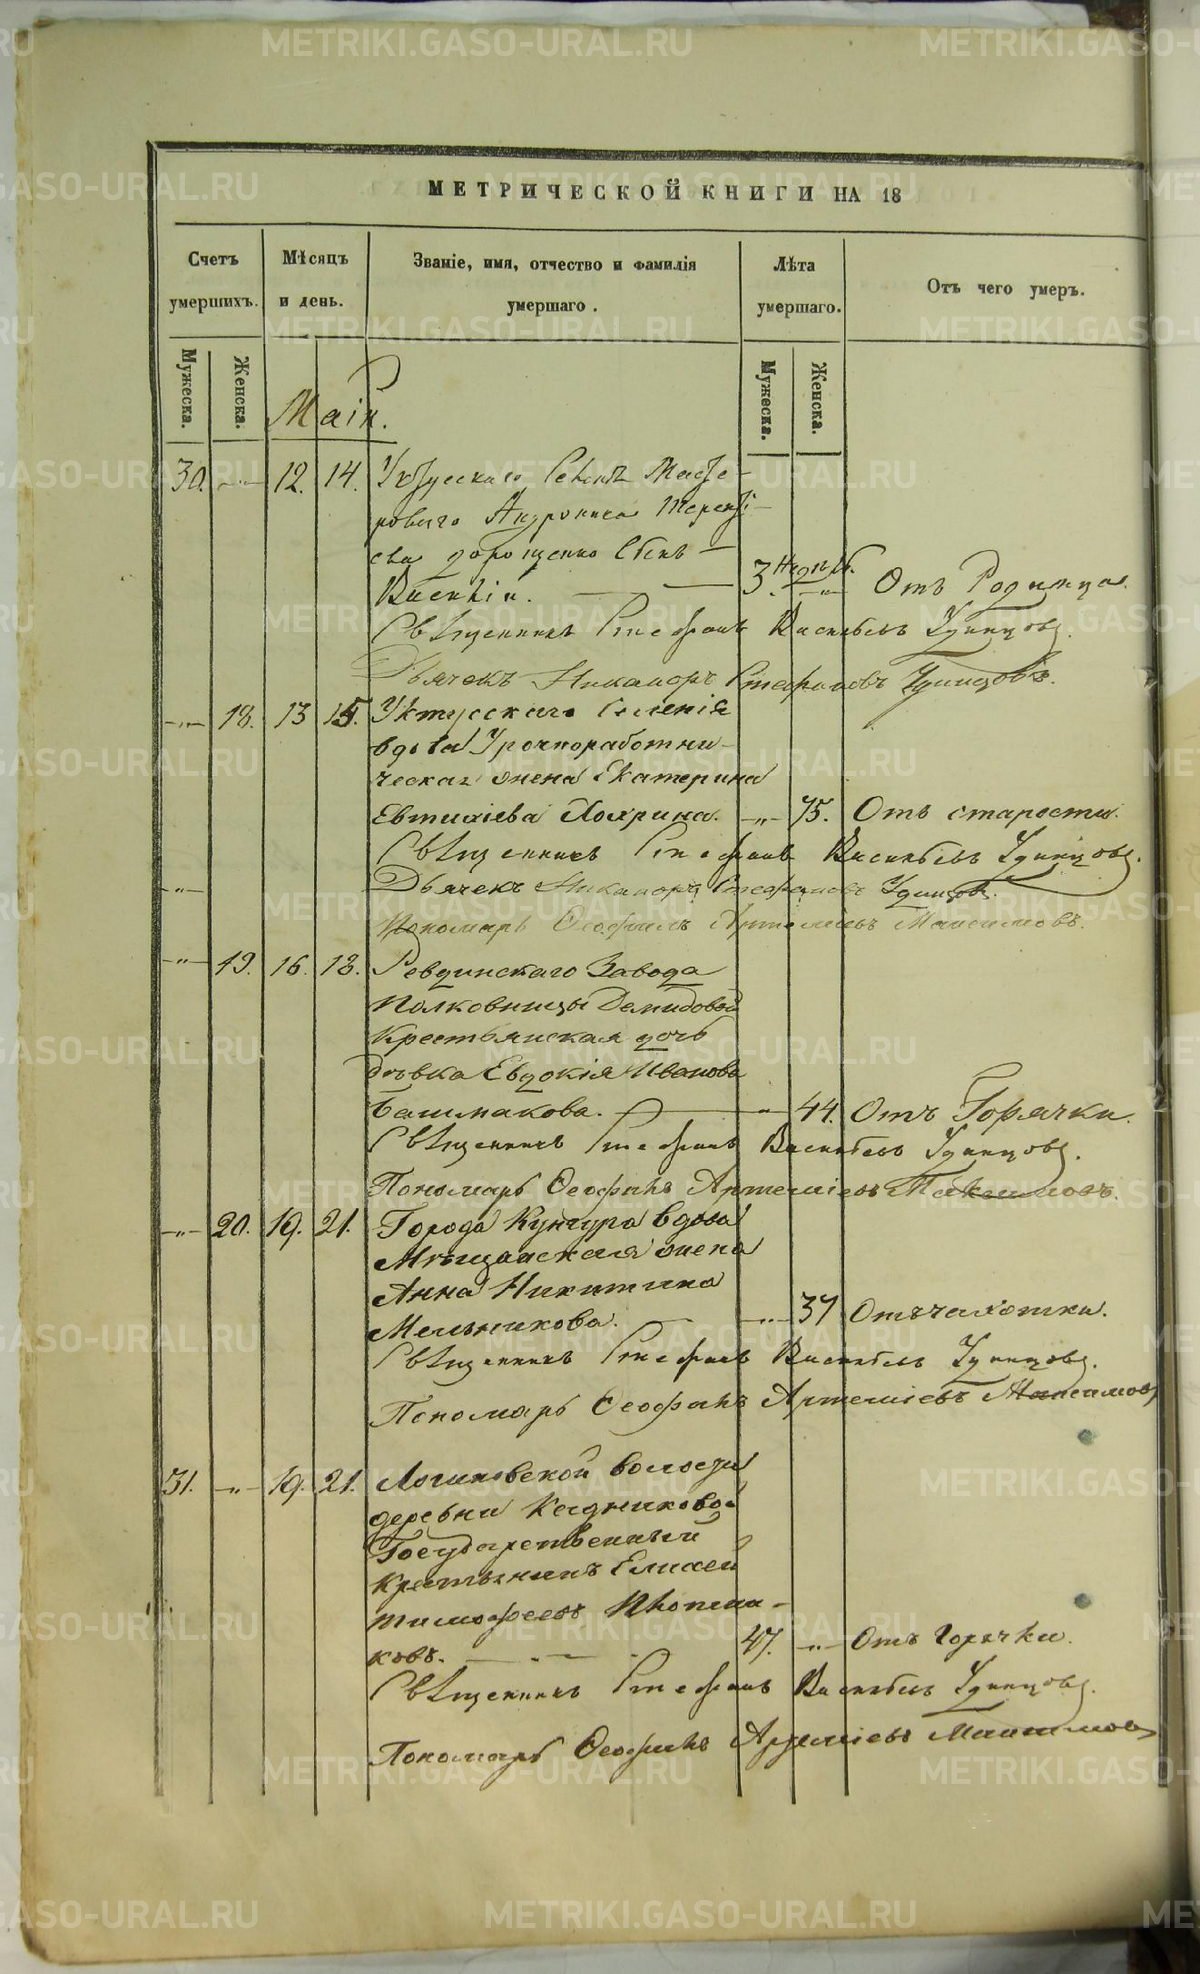 МЕТРИЧЕСКОЙ КНИГИ НА 18
Счетъ умершихъ.
Мѣсяцъ и день.
Званіе, имя, отчество и фамилія умершаго.
Лѣта умершаго.
Отъ чего умеръ.
Мужеска.
Женска.
Мужеска.
Женска.
Маія.
30. -"- 12. 14. Уктусскаго Селенія Масте-
роваго Андроника Теренті-
ева Дорощенко Сынъ
Василій. 3. Недѣль -"- Отъ Родимца.
Священникъ Стефанъ Васильевъ Удинцовъ.
Дьячекъ Никаноръ Стефановъ Удинцовъ.
-"- 18. 13 15. Уктусскаго Селенія
вдова Урочноработни-
ческая жена Екатерина
Евтихіева -"- 75. Отъ старости.
Священникъ Стефанъ Васильевъ Удинцовъ.
-"- Дьячекъ Никаноръ Стефановъ Удинцовъ.
Пономарь Ѳеофилъ Артеміевъ Максимовъ.
-"- 19. 16. 18. Ревдинскаго Завода
Полковницы Демидовой
Крестьянская дочь
дѣвка Евдокія Иванова
Башмакова. -"- 44. Отъ Горячки.
Священникъ Стефанъ Васильевъ Удинцовъ.
Пономарь Ѳеофилъ Артеміевъ Максимовъ.
-"- 20. 19. 21. Города Кунгура вдова
Мѣщанская жена
Анна Никитина
Мельникова. -"- 37 Отъ чахотки.
Священникъ Стефанъ Васильевъ Удинцовъ.
Пономарь Ѳеофилъ Артеміевъ Максимовъ
31. -"- 19. 21. Логиновской волости
деревни Кадниковой
Государственный
Крестьянинъ Елисей
Тимофеевъ
ковъ. 47. -"- Отъ Горячки.
Священникъ Стефанъ Васильевъ Удинцовъ.
Пономарь Ѳеофилъ Артеміевъ Максимовъ
METRIKI.GASO-URAL.RU